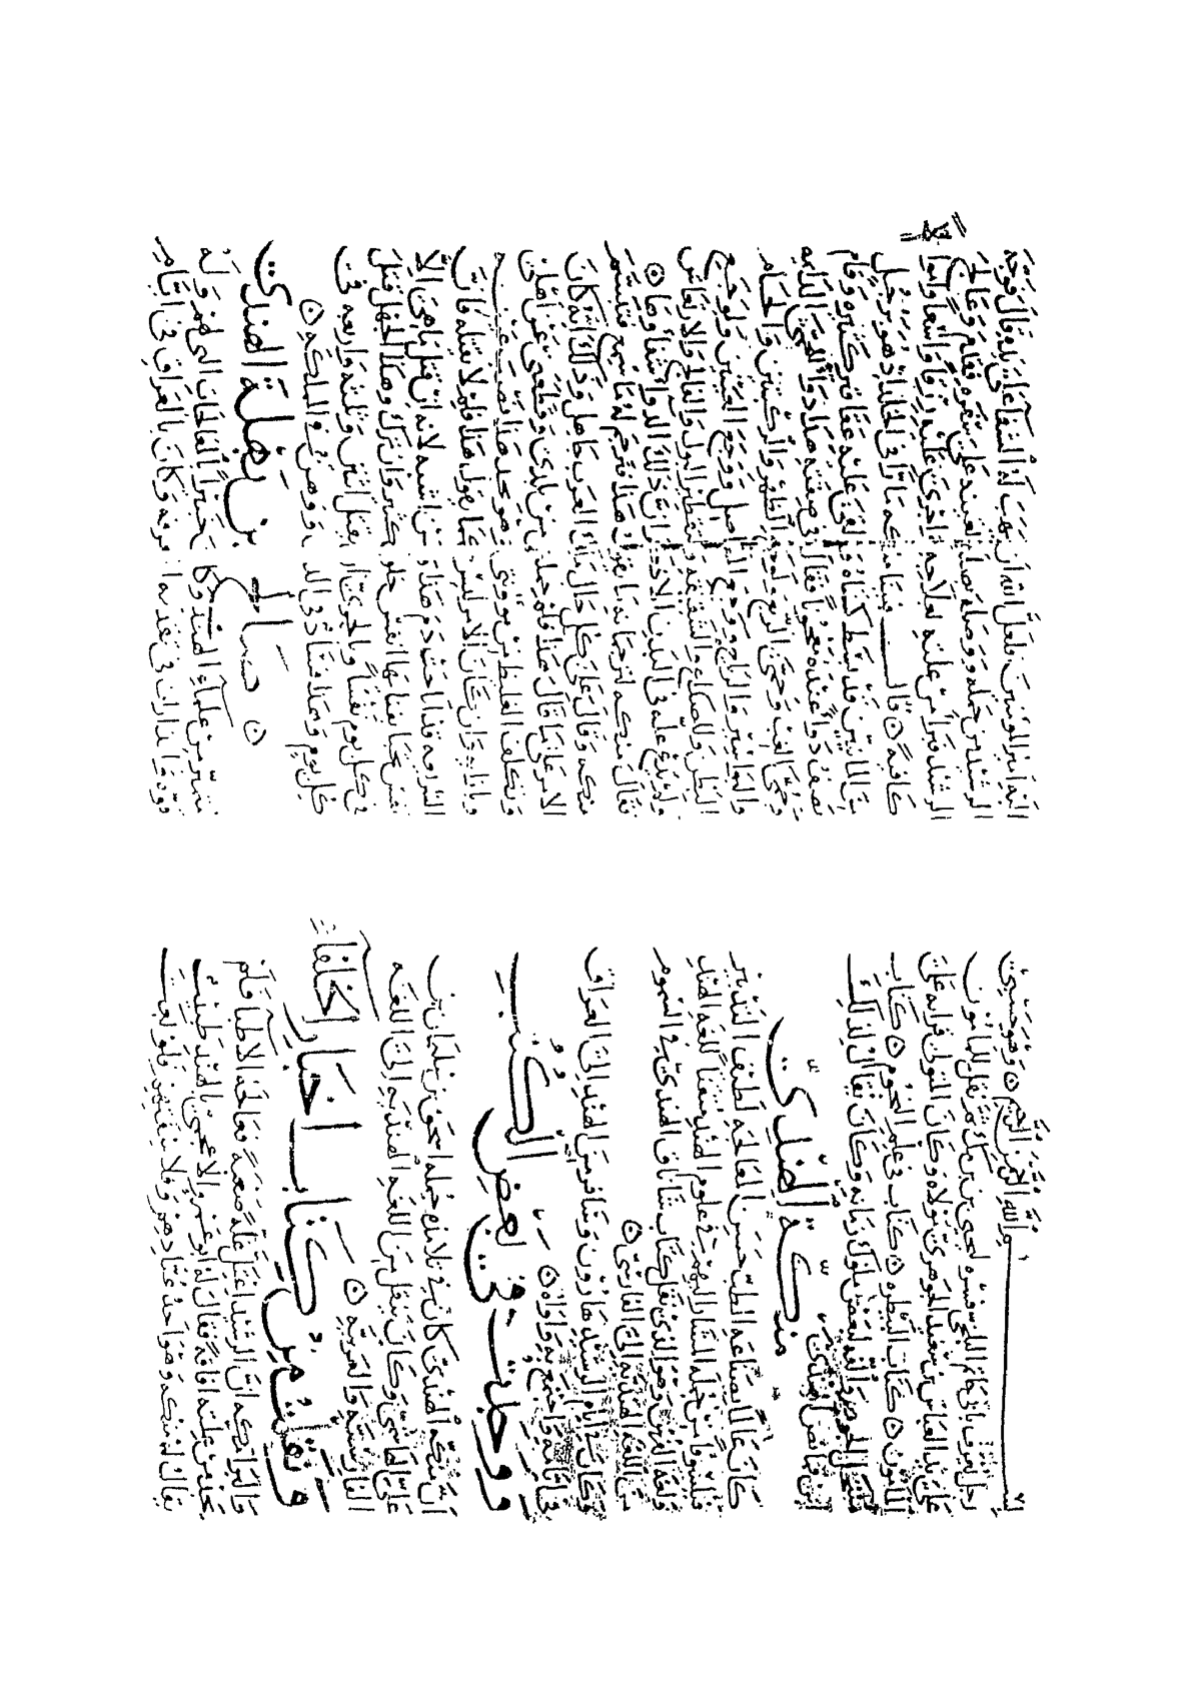 بسم الله الرحمن الرحيم ۝ وهو حسبي
رجل يعرف بابي حاتم البلخي فسره ليحيى بن خالد ثم نقل للمامون
على يد العباس بن سعيد الجوهري مولاه وكان المتولي قراءته على
المامون ۝ كتاب البيطره ۝ كتاب في علم النجوم ۝ كتاب
منتحل الجوهر والفه لبعض ملوك زمانه وكان يقال لذلك
ابن قمانص الهندي
منكة الهندي
كان عالما بصناعة الطب حسن المعالجة لطيف التدبير
فيلسوفا من جملة المشار اليهم في علوم الهند متقنا للغة الهند
ولغة الفرس وهو الذي نقل كتاب شاناق الهندي في السموم
من اللغة الهندية الى الفارسي ۝
وكان في ايام الرشيد هارون وسافر من الهند الى العراق
في ايامه واجتمع به وداواه ۝
ووجدت في بعض الكتب
ان منكة الهندي كان في جملة اسحق بن سليمان بن
علي الهاشمي وكان ينقل من اللغة الهندية الى اللغة
الفارسية والعربية ۝
ونقلت من كتاب اخبار الخلفاء
والبرامكه ان الرشيد اعتل علة صعبة فعالجه الاطبا فلم
يجد من علته افاقة فقال له ابو عمر والاعجمي بالهند طبيب
يقال له منكه وهو احد عبادهم وفلاسفتهم فلو بعث
اليه امير المومنين فلعل الله ان يهب له الشفا على يده قال فوجه
الرشيد من حمله ووصله بصلة تعينه على سفره فقدم وعالج
الرشيد فبرا من علته بعلاجه فاجرى عليه رزقا واسعا واموالا
كافية ۝ قال فبينا منكه مارا في الخلد اذ هو برجل
من المانيين قد بسط كساه والقى عليه عقاقير كثيره وقام
يصف دوا عنده معجونا فقال في صفته هذا دوا للحمى الدايمه
وحمى الغب وحمى الربع ولوجع الظهر والركبتين والخام
والبواسير والرياح ووجع المفاصل ووجع العينين ولوجع
البطن والصداع والشقيقه ولتقطير البول والفالج والارتعاش
ولم يدع علة في البدن الا ذكر ان ذلك الدوا شفاوها ۝
فقال منكه لترجمانه ما يقول هذا فترجم له ما سمع فتبسم
منكه وقال على كل حال ملك العرب جاهل وذلك انه كان
الامر على ما قال هذا فلم حملني من بلدي وقطعني عن اهلي
وتكلف الغليظ من مووني وهو يجد هذا نصب عينه
وبازايه وان كان الامر ليس كما يقول هذا فلم لا يقتله فان
الشريعه قد اباحت دم هذا ومن اشبهه لانه ان قتل ما هي الا
نفس يحيا بفنايها انفس خلق كثير وان ترك وهذا الجهل قتل
في كل يوم نفسا وبالحرى ان يقتل اثنين وثلثه واربعه في
كل يوم وهذا فساد في الدين ووهن في المملكه ۝
۝ صالح بن بهلة الهندي
متميز من علماء الهند وكان خبيرا بالمعالجات التي لهم وله
قوة وانذارات في تقدمة المعرفه وكان بالعراق في ايام